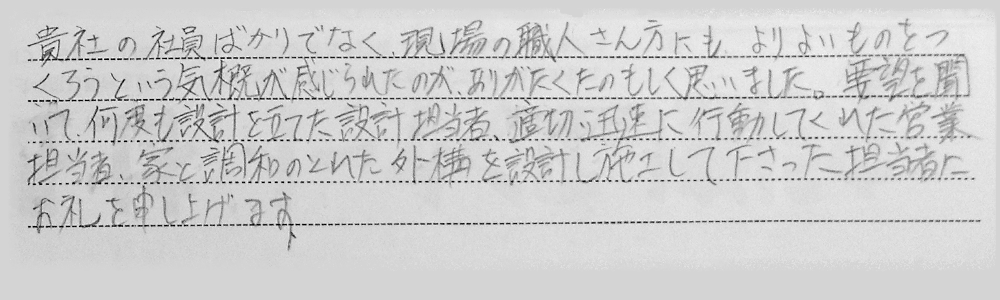 貴社の社員ばかりでなく、現場の職人さん方にも、よりよいものをつ
くろうという気概が感じられたのが、ありがたくたのもしく思いました。要望を聞
いて、何度も設計を立てた設計担当者、適切迅速に行動してくれた営業
担当者、家と調和のとれた外構を設計し施工して下さった担当者に
お礼を申し上げます。